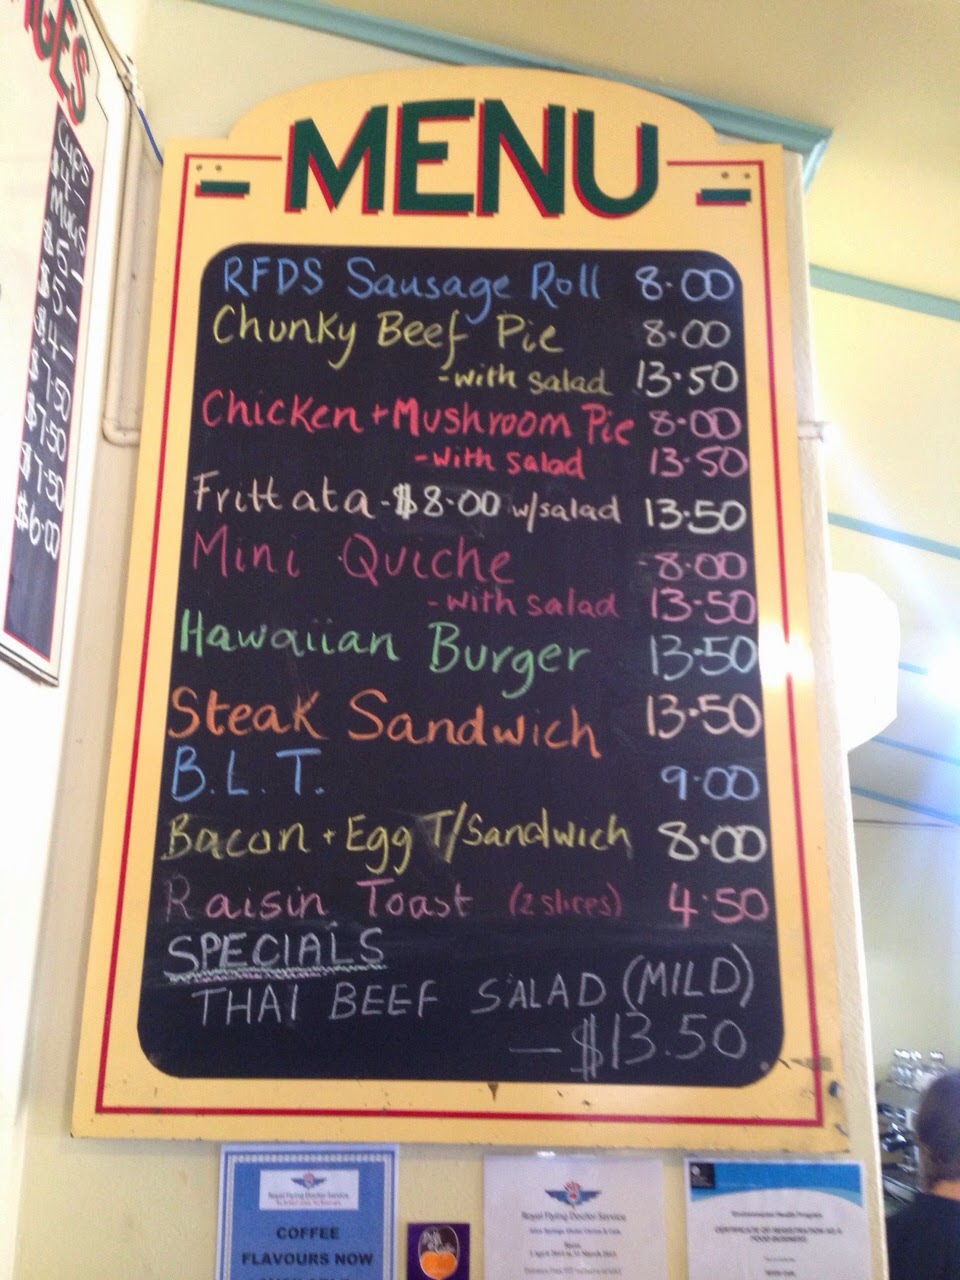 GES
CUPS
$4-
MUGS
$5-
$5-
$4-
$7.50
$7.50
$7.50
$6.00
MENU
RFDS Sausage Roll 8.00
Chunky Beef Pie 8.00
-with salad 13.50
Chicken + Mushroom Pie 8.00
-with salad 13.50
Frittata-$8.00 w/salad 13.50
Mini Quiche -8.00
-with salad 13.50
Hawaiian Burger 13.50
Steak Sandwich 13.50
B.L.T. 9.00
Bacon + Egg T/Sandwich 8.00
Raisin Toast (2 slices) 4.50
SPECIALS
THAI BEEF SALAD (MILD)
—$13.50
Royal Flying Doctor Service
COFFEE
FLAVOURS NOW
Royal Flying Doctor Service
CERTIFICATE OF REGISTRATION AS A
FOOD BUSINESS